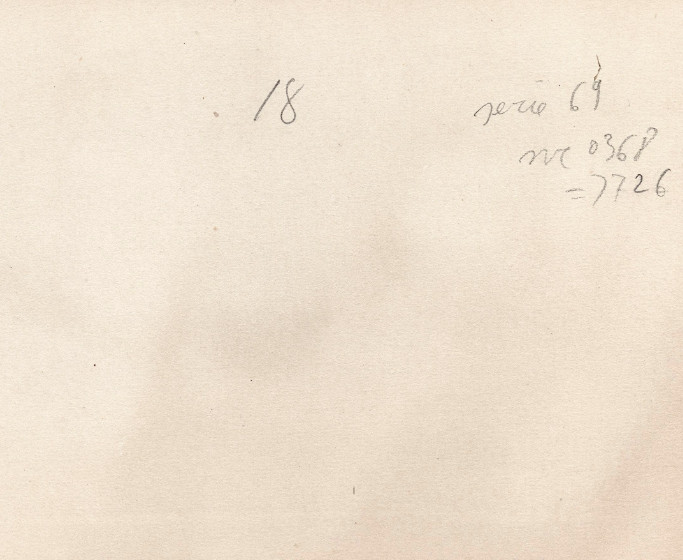 18
serie 64
nr 0368
=7726